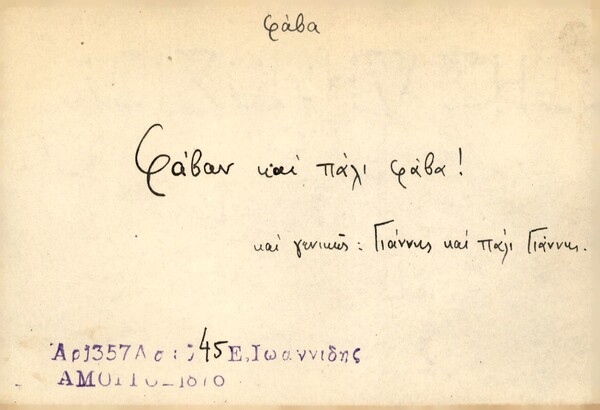 φάβα
Φάβαν καί πάλι φάβα!
καί γενικῶς: Γιάννης καί πάλι Γιάννης.
Αρ)357Λσ: 145 Ε,Ιωαννιδης
ΑΜΟΡΓΟ_1876